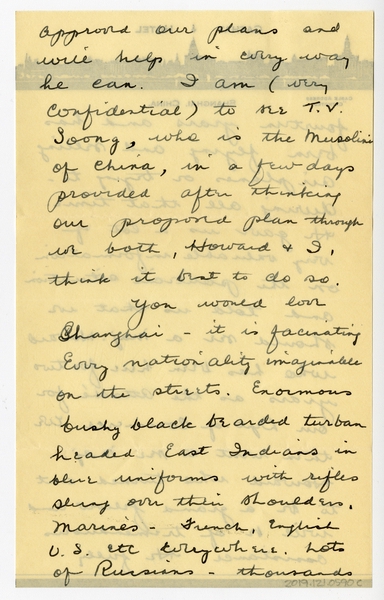 approved our plans and
will help in every way
he can. I am (very
confidential) to see T.V.
Soong, who is the Musolini
of China, in a few days
provided after thinking
our proposed plan through
we both, Howard & I,
think it best to do so.
You would love
Shanghai - it is facinating
Every nationality imaginable
on the streets. Enormous
bushy black bearded turban
headed East Indians in
blue uniforms with rifles
slung over their shoulders.
Marines - French, English
U.S. etc everywhere. Lots
of Russians - thousands
2019.12.0590c